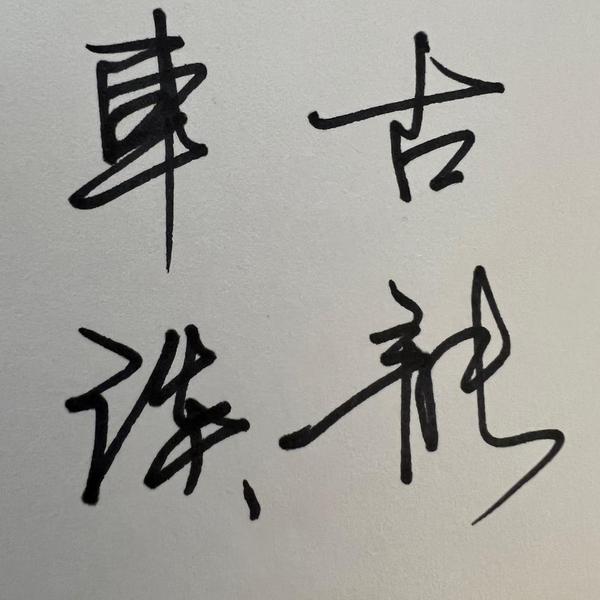 古龍
車